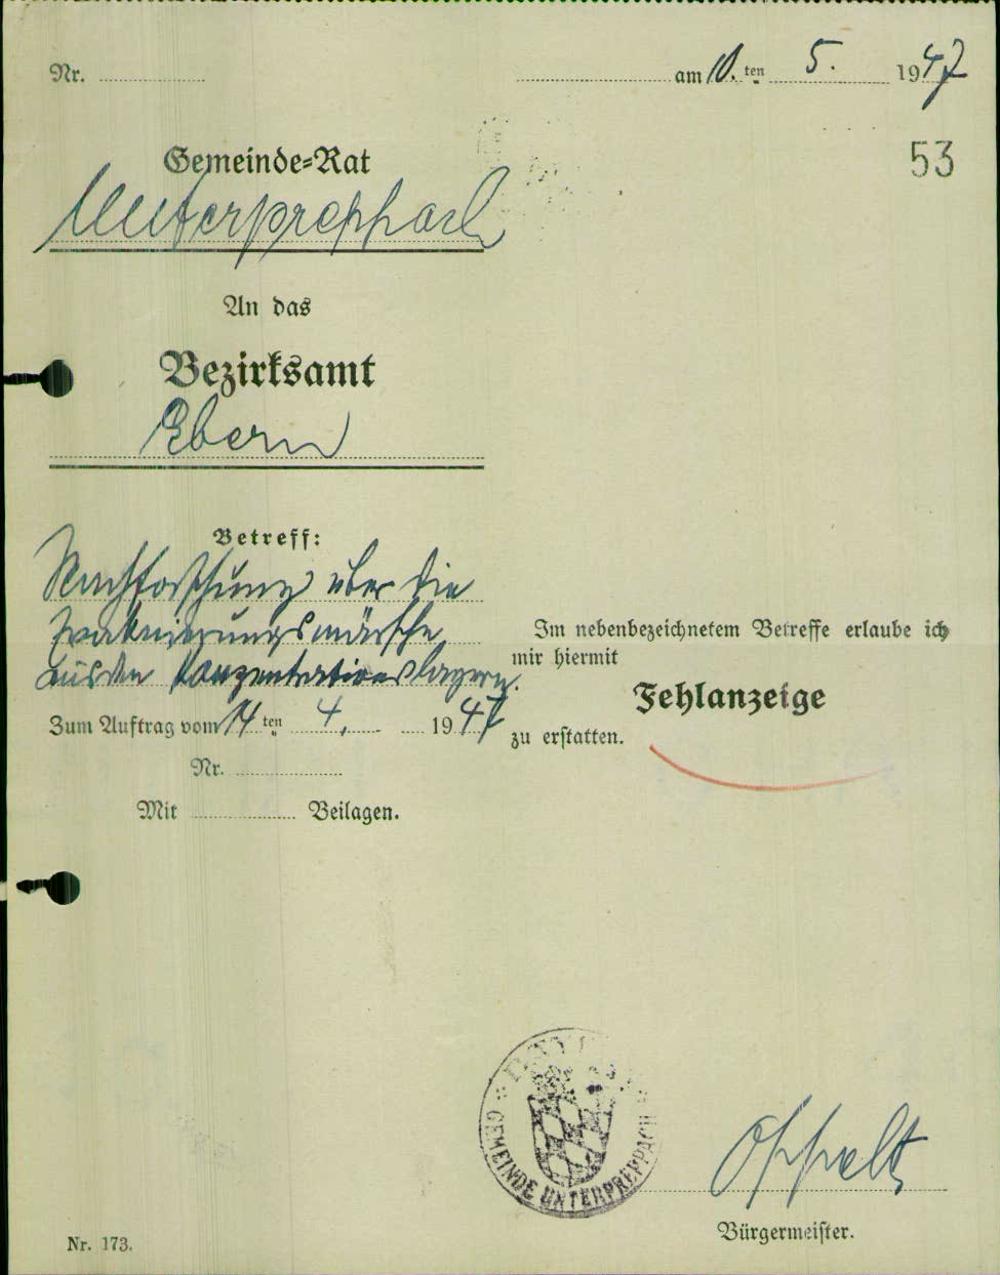 Nr. am 10. ten 5. 1947
53
Gemeinde-Rat
Unterpreppach
An das
Bezirksamt
Ebern
Betreff:
Nachforschung über die
Evakuierungsmärsche
aus den Konzentrationslagern.
Zum Auftrag vom 14 ten 4. 1947
Nr.
Mit Beilagen.
Im nebenbezeichnetem Betreffe erlaube ich
mir hiermit
Fehlanzeige
zu erstatten.
BAYERN
GEMEINDE UNTERPREPPACH
Oppelt
Bürgermeister.
Nr. 173.